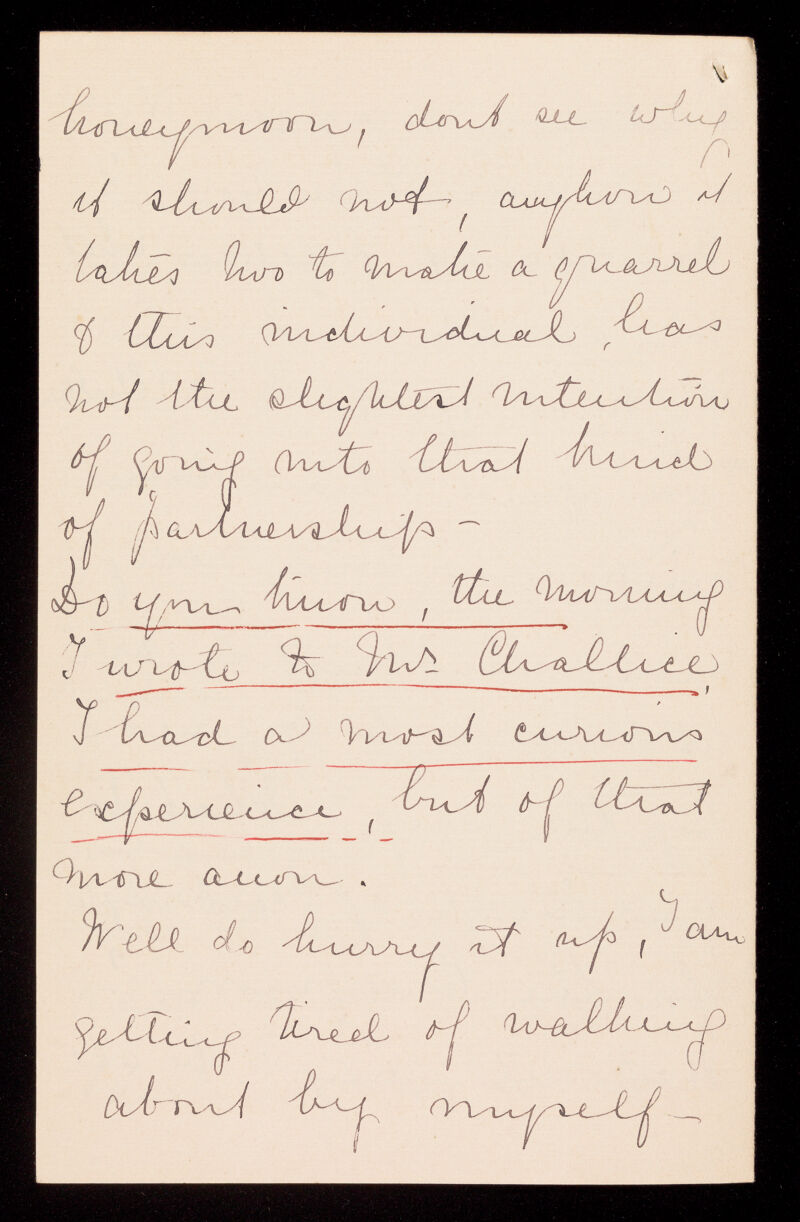 honeymoon, dont see why
it should not, anyhow it
takes two to make a quarrel
& this individual, has
not the slightest intention
of going into that kind
of partnership -
Do you know, the morning
I wrote to Mrs Challice,
I had a most curious
experience, but of that
more anon.
Well do hurry it up, I am
getting tired of walking
about by myself -